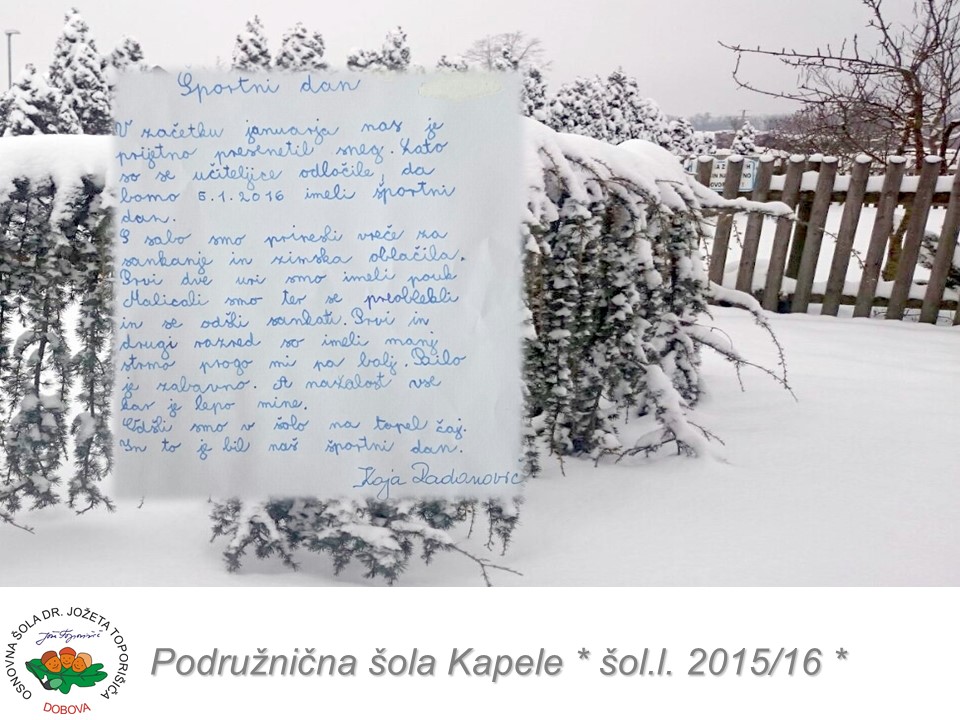 Športni dan
V začetku januarja nas je
prijetno presenetil sneg. Zato
so se učiteljice odločile, da
bomo 5.1.2016 imeli športni
dan.
S sabo smo prinesli vreče za
sankanje in zimska oblačila.
Prvi dve uri smo imeli pouk
Malicali smo ter se preoblekli
in se odšli sankati. Prvi in
drugi razred so imeli manj
strmo progo mi pa bolj. Bilo
je zabavno. A nažalost vse
kar je lepo mine.
Odšli smo v šolo na topel čaj.
In to je bil naš športni dan.
Kaja Radanovič
OSNOVNA ŠOLA DR. JOŽETA TOPORIŠIČA
DOBOVA
Podružnična šola Kapele * šol.l. 2015/16 *